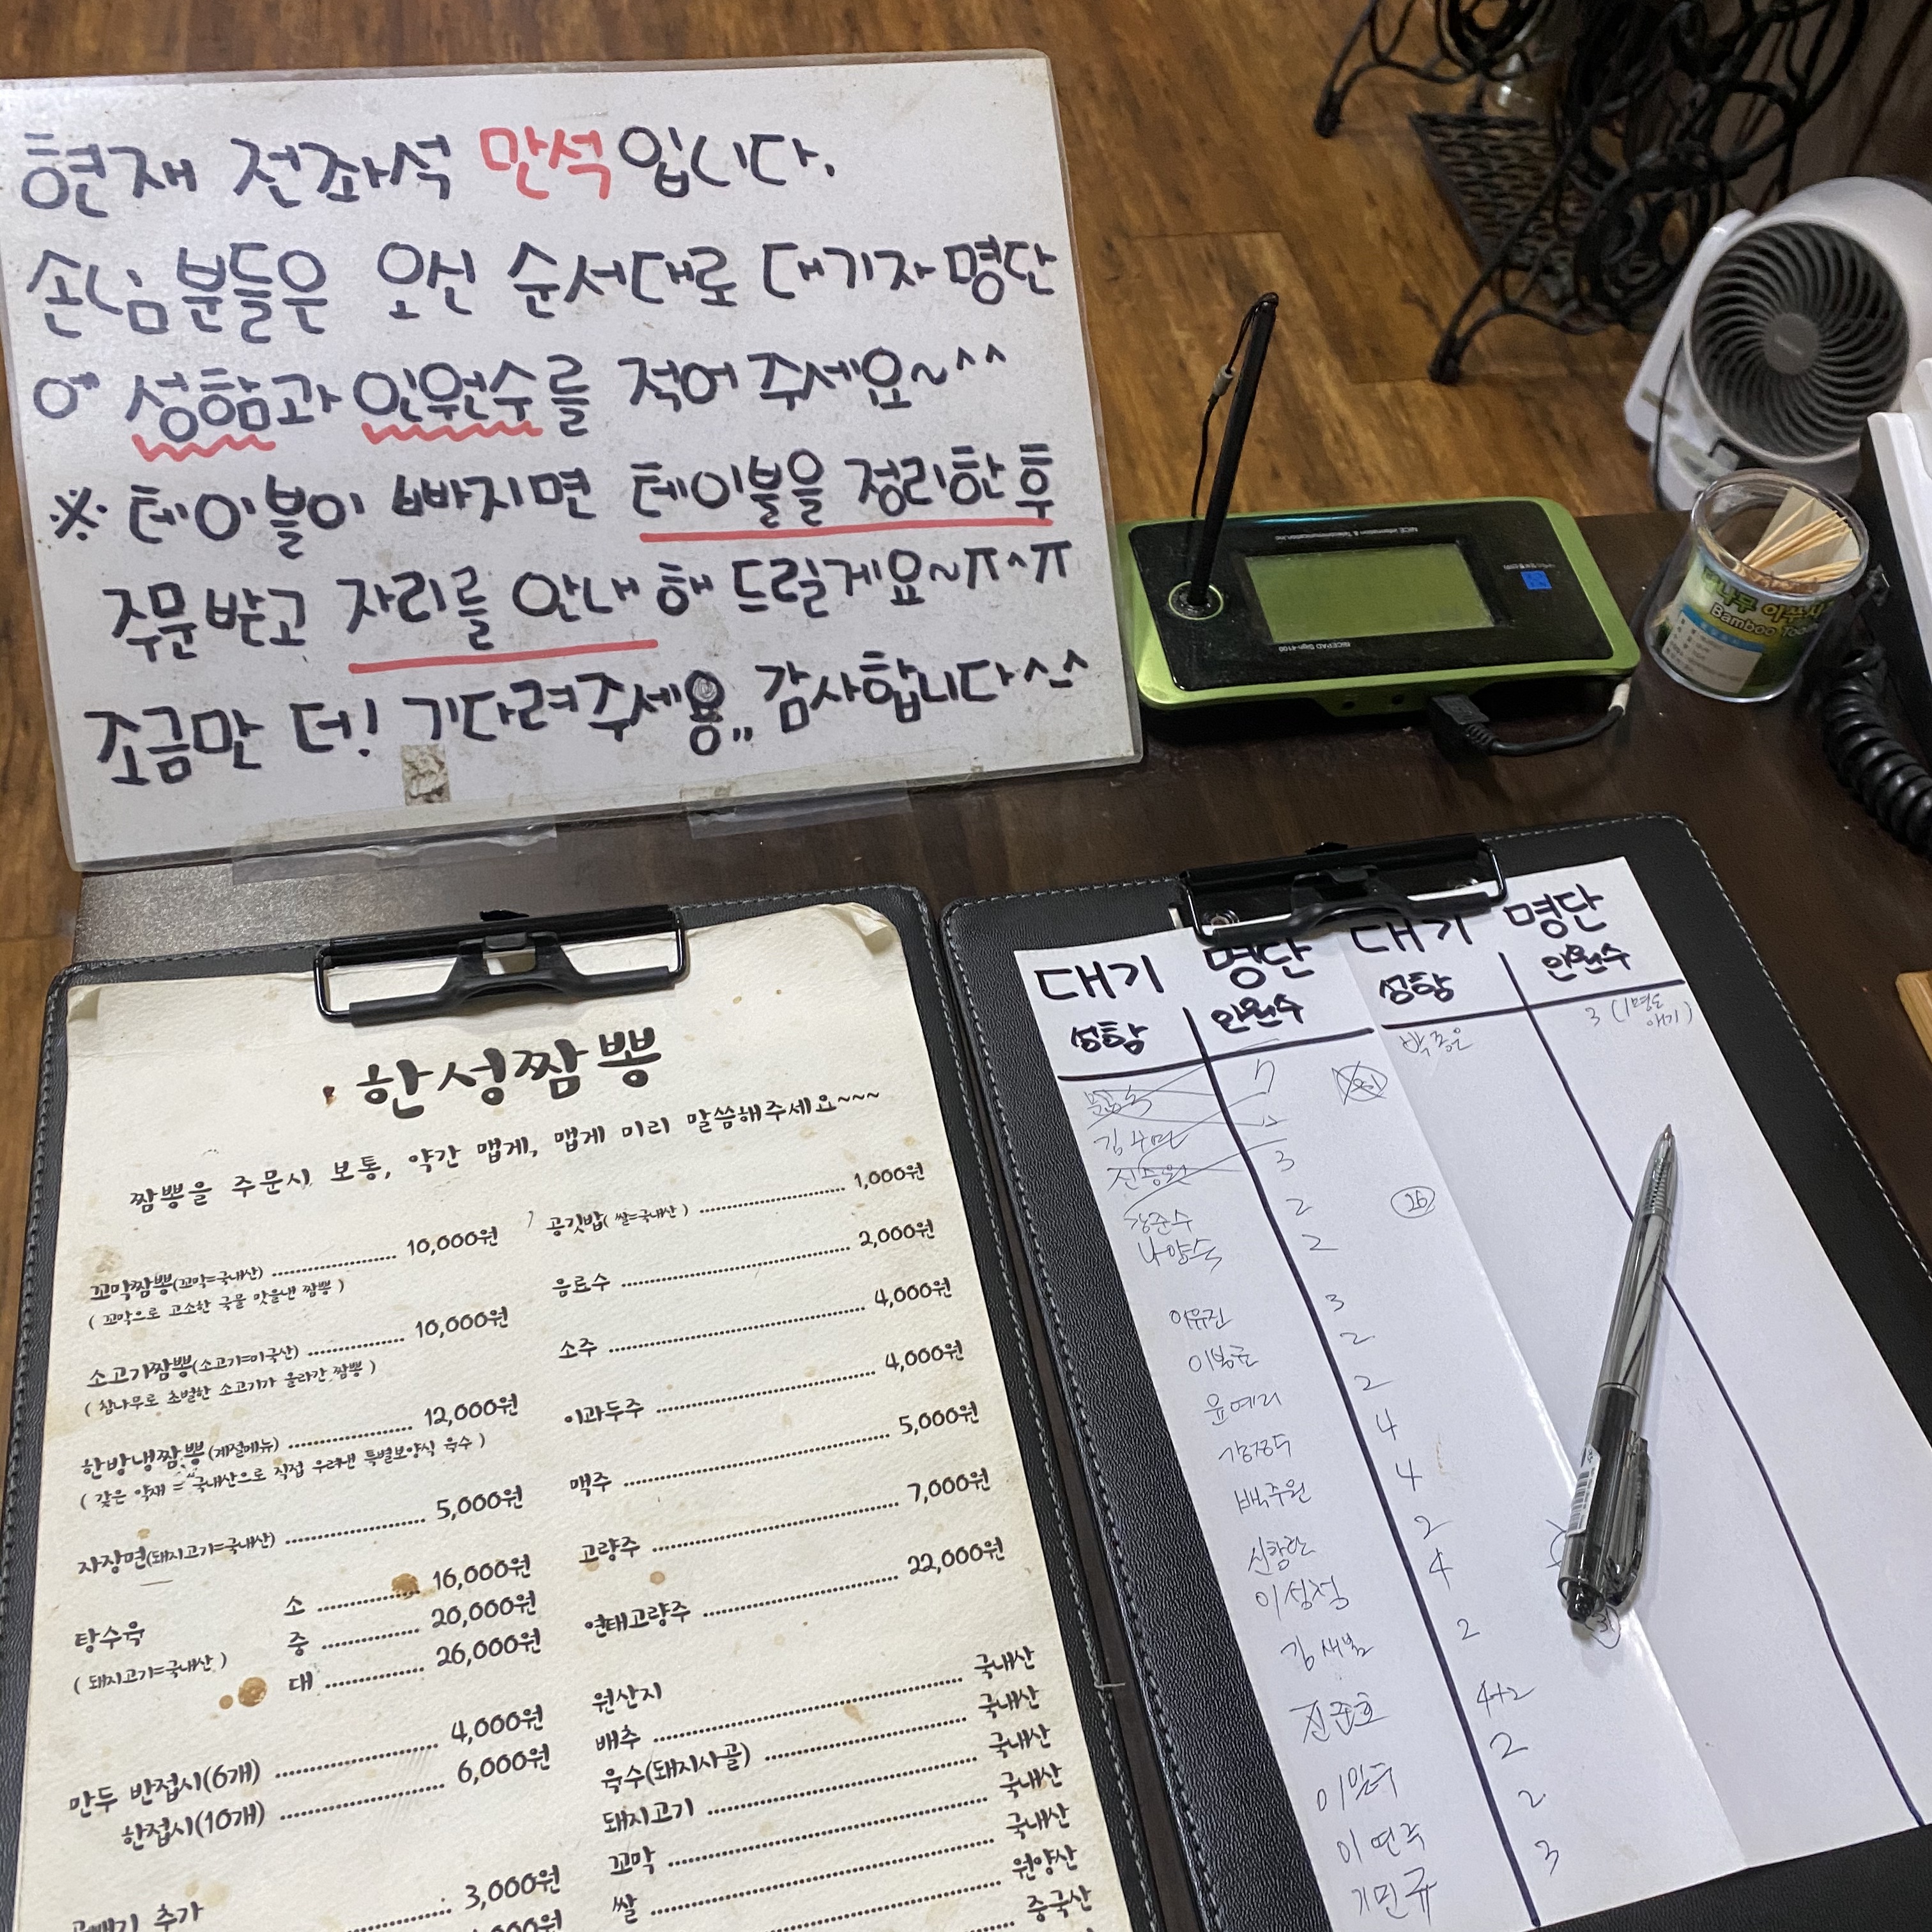 현재 전좌석 만석입니다.
손님분들은 오신 순서대로 대기자 명단
에 성함과 인원수를 적어주세요~^^
※ 테이블이 빠지면 테이블을 정리한 후
주문받고 자리를 안내해 드릴게요~ㅠ^ㅠ
조금만 더! 기다려주세용,, 감사합니다^^
NICE Information & Telecommunication, Inc
NICEPAD Sign-4100
Bamboo
한성짬뽕
짬뽕을 주문시 보통, 약간 맵게, 맵게 미리 말씀해주세요~~~
꼬막짬뽕(꼬막=국내산) 10,000원
( 꼬막으로 고소한 국물 맛을낸 짬뽕 )
소고기짬뽕(소고기=미국산) 10,000원
( 참나무로 초벌한 소고기가 올라간 짬뽕 )
한방냉짬뽕(계절메뉴) 12,000원
( 갖은 약재 = 국내산으로 직접 우려낸 특별보양식 육수 )
자장면(돼지고기=국내산) 5,000원
탕수육
( 돼지고기=국내산 )
소 16,000원
중 20,000원
대 26,000원
만두 반접시(6개) 4,000원
한접시(10개) 6,000원
추가 3,000원
공깃밥( 쌀=국내산 ) 1,000원
음료수 2,000원
소주 4,000원
이과두주 4,000원
맥주 5,000원
고량주 7,000원
연태고량주 22,000원
원산지
배추 국내산
육수(돼지사골) 국내산
돼지고기 국내산
꼬막 국내산
쌀 국내산
원양산
중국산
대기 명단
성함 인원수
7
3
2
나양숙 2
이유진 3
2
윤예리 2
4
백주원 4
2
이성철 4
김새봄 2
진준호 4+2
2
이연주 2
3
대기 명단
성함 인원수
3 (1명은
애기)
26